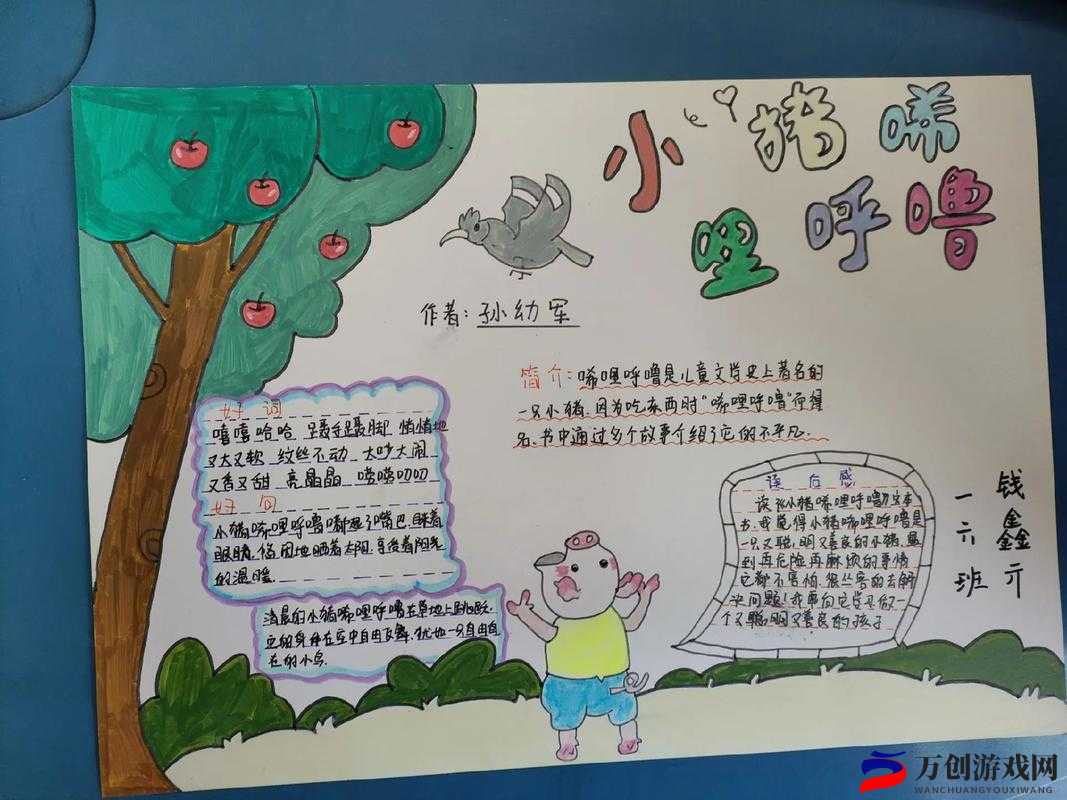 小猪唏
哩呼噜
作者：孙幼军
简介：唏哩呼噜是儿童文学史上著名的
一只小猪.因为吃东西时“唏哩呼噜”而得
名.书中通过多个故事介绍了它的不平凡.
好词
嘻嘻哈哈 蹑手蹑脚 悄悄地
又大又软 纹丝不动 大吵大闹
又香又甜 亮晶晶 唠唠叨叨
好句
小猪唏哩呼噜噘起了嘴巴,眯着
眼睛,悠闲地晒着太阳.享受着阳光
的温暖.
清晨的小猪唏哩呼噜在草地上跳跃,
它的身体在空中自由飞舞.犹如一只自由自
在的小鸟.
读后感
读了《小猪唏哩呼噜》这本
书.我觉得小猪唏哩呼噜是
一只又聪明又善良的小猪.遇
到再危险再麻烦的事情
它都不害怕.很从容的去解
决问题!我要向它学习做一
个又聪明又善良的孩子
一六班
钱鑫亓
万创游戏网
WANCHUANGYOUXIWANG